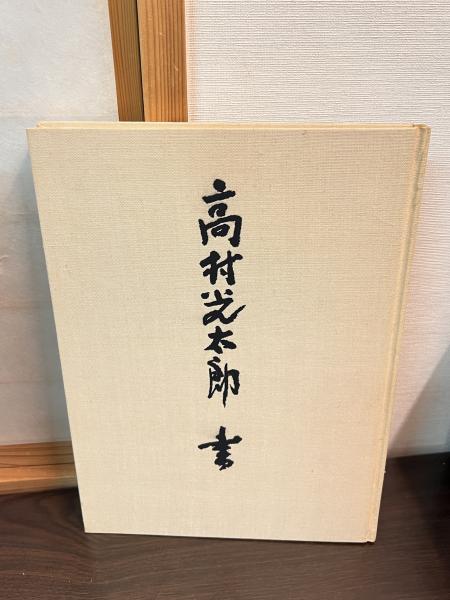 高村光太郎 書